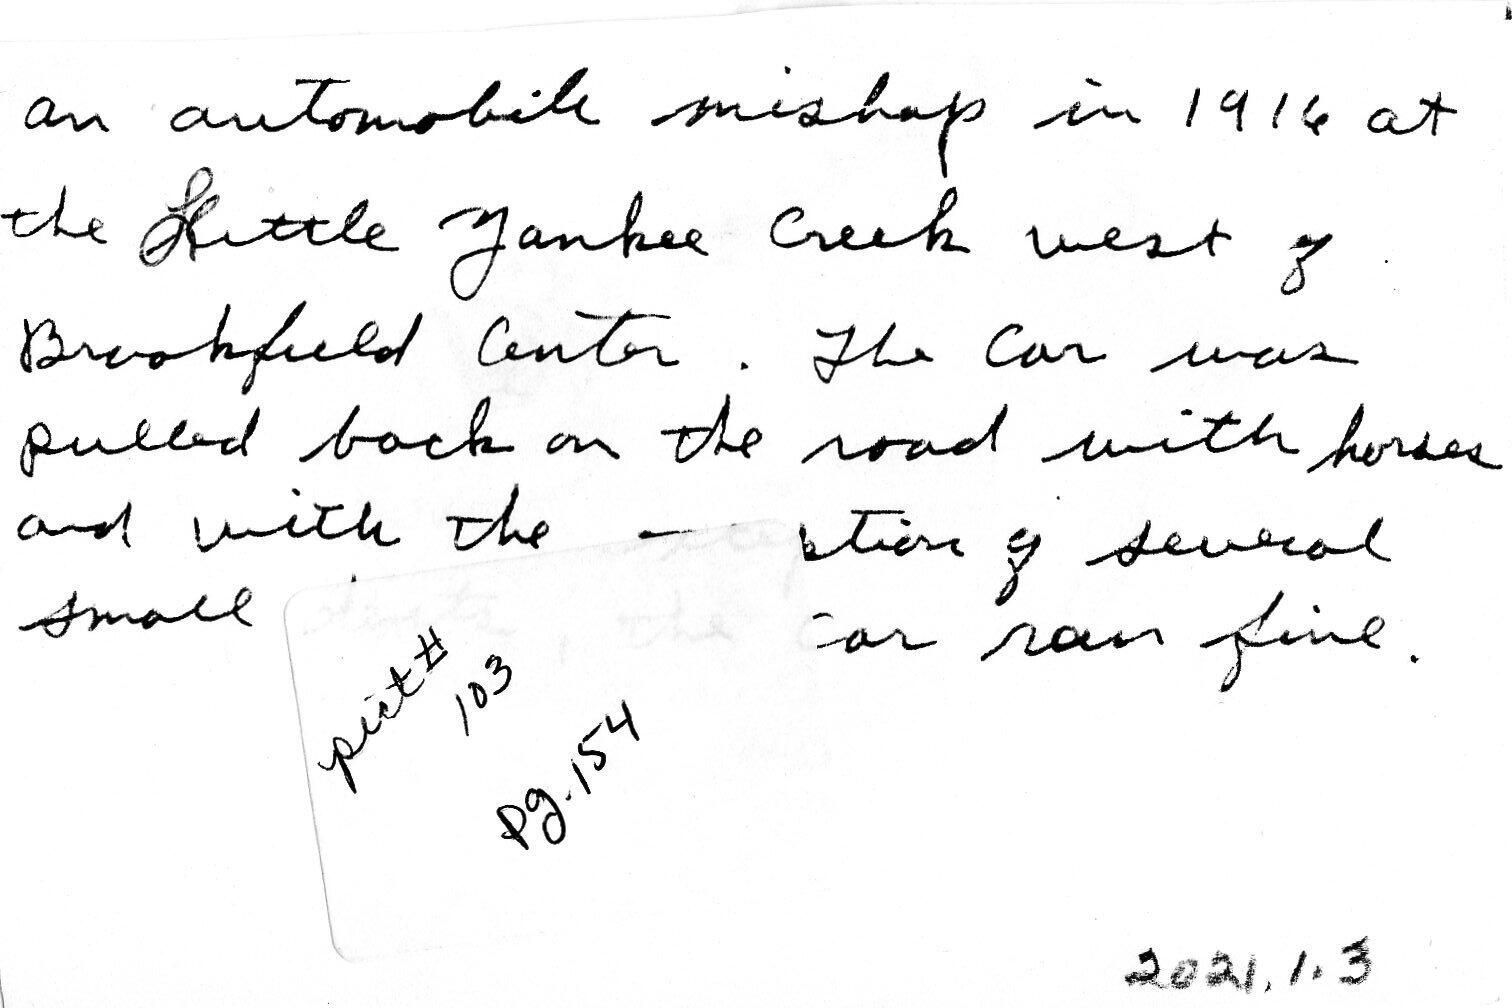 an automobile mishap in 1916 at
the Little Yankee Creek west of
Brookfield Center. The Car was
pulled back on the road with horses
and with the of several
small car ran fine.
pict #
103
pg. 154
2021.1.3